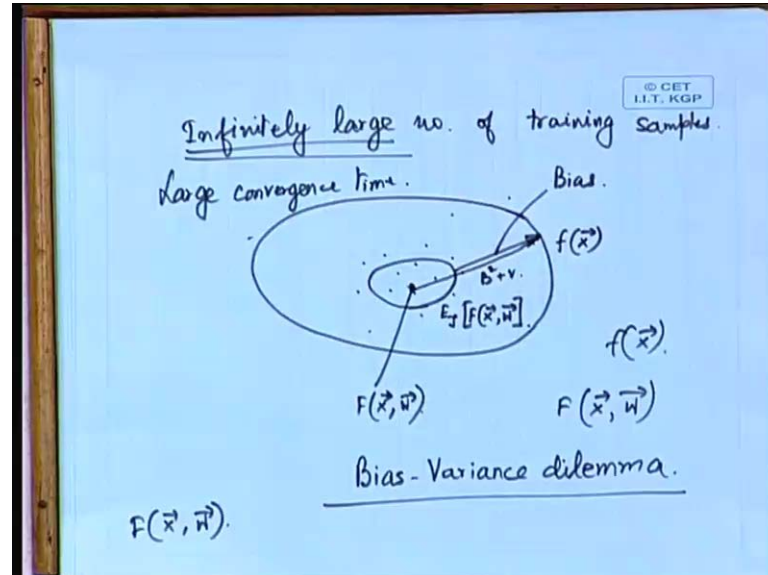 © CET
I.I.T. KGP
Infinitely large no. of training samples.
Large convergence time.
Bias.
f(x⃗)
B²+V.
E_J [F(x⃗,w⃗)].
f(x⃗).
F(x⃗,w⃗)
F(x⃗,w⃗)
Bias-Variance dilemma.
F(x⃗,w⃗).